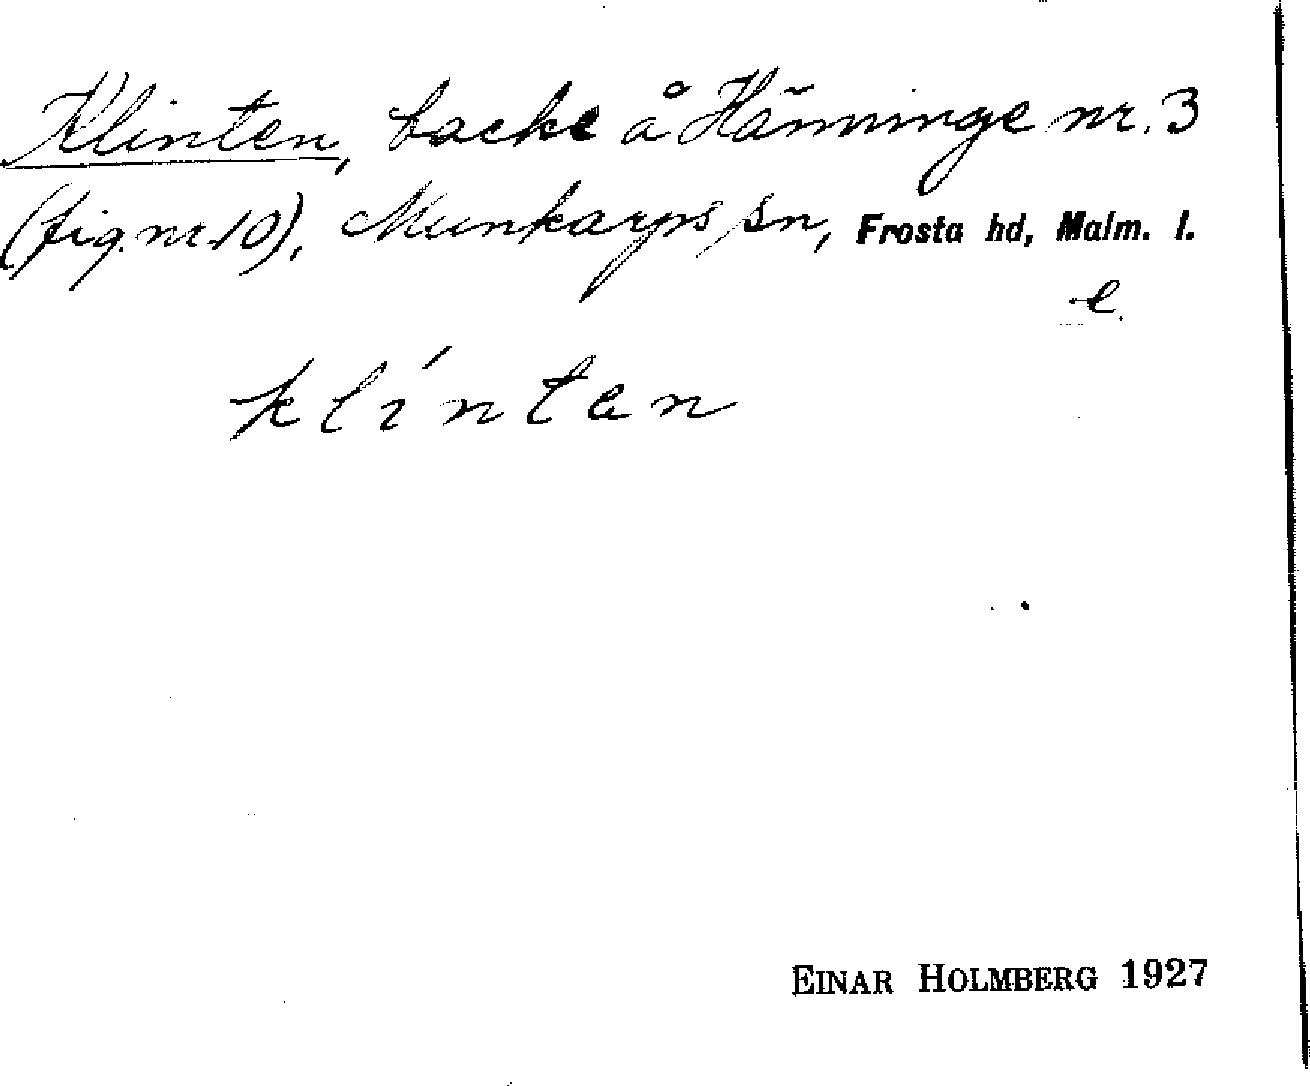 Klinten, backe å Hänninge nr. 3
(fig. nr 10), Munkarps sn, Frosta hd, Malm. l.
e.
klínten
EINAR HOLMBERG 1927